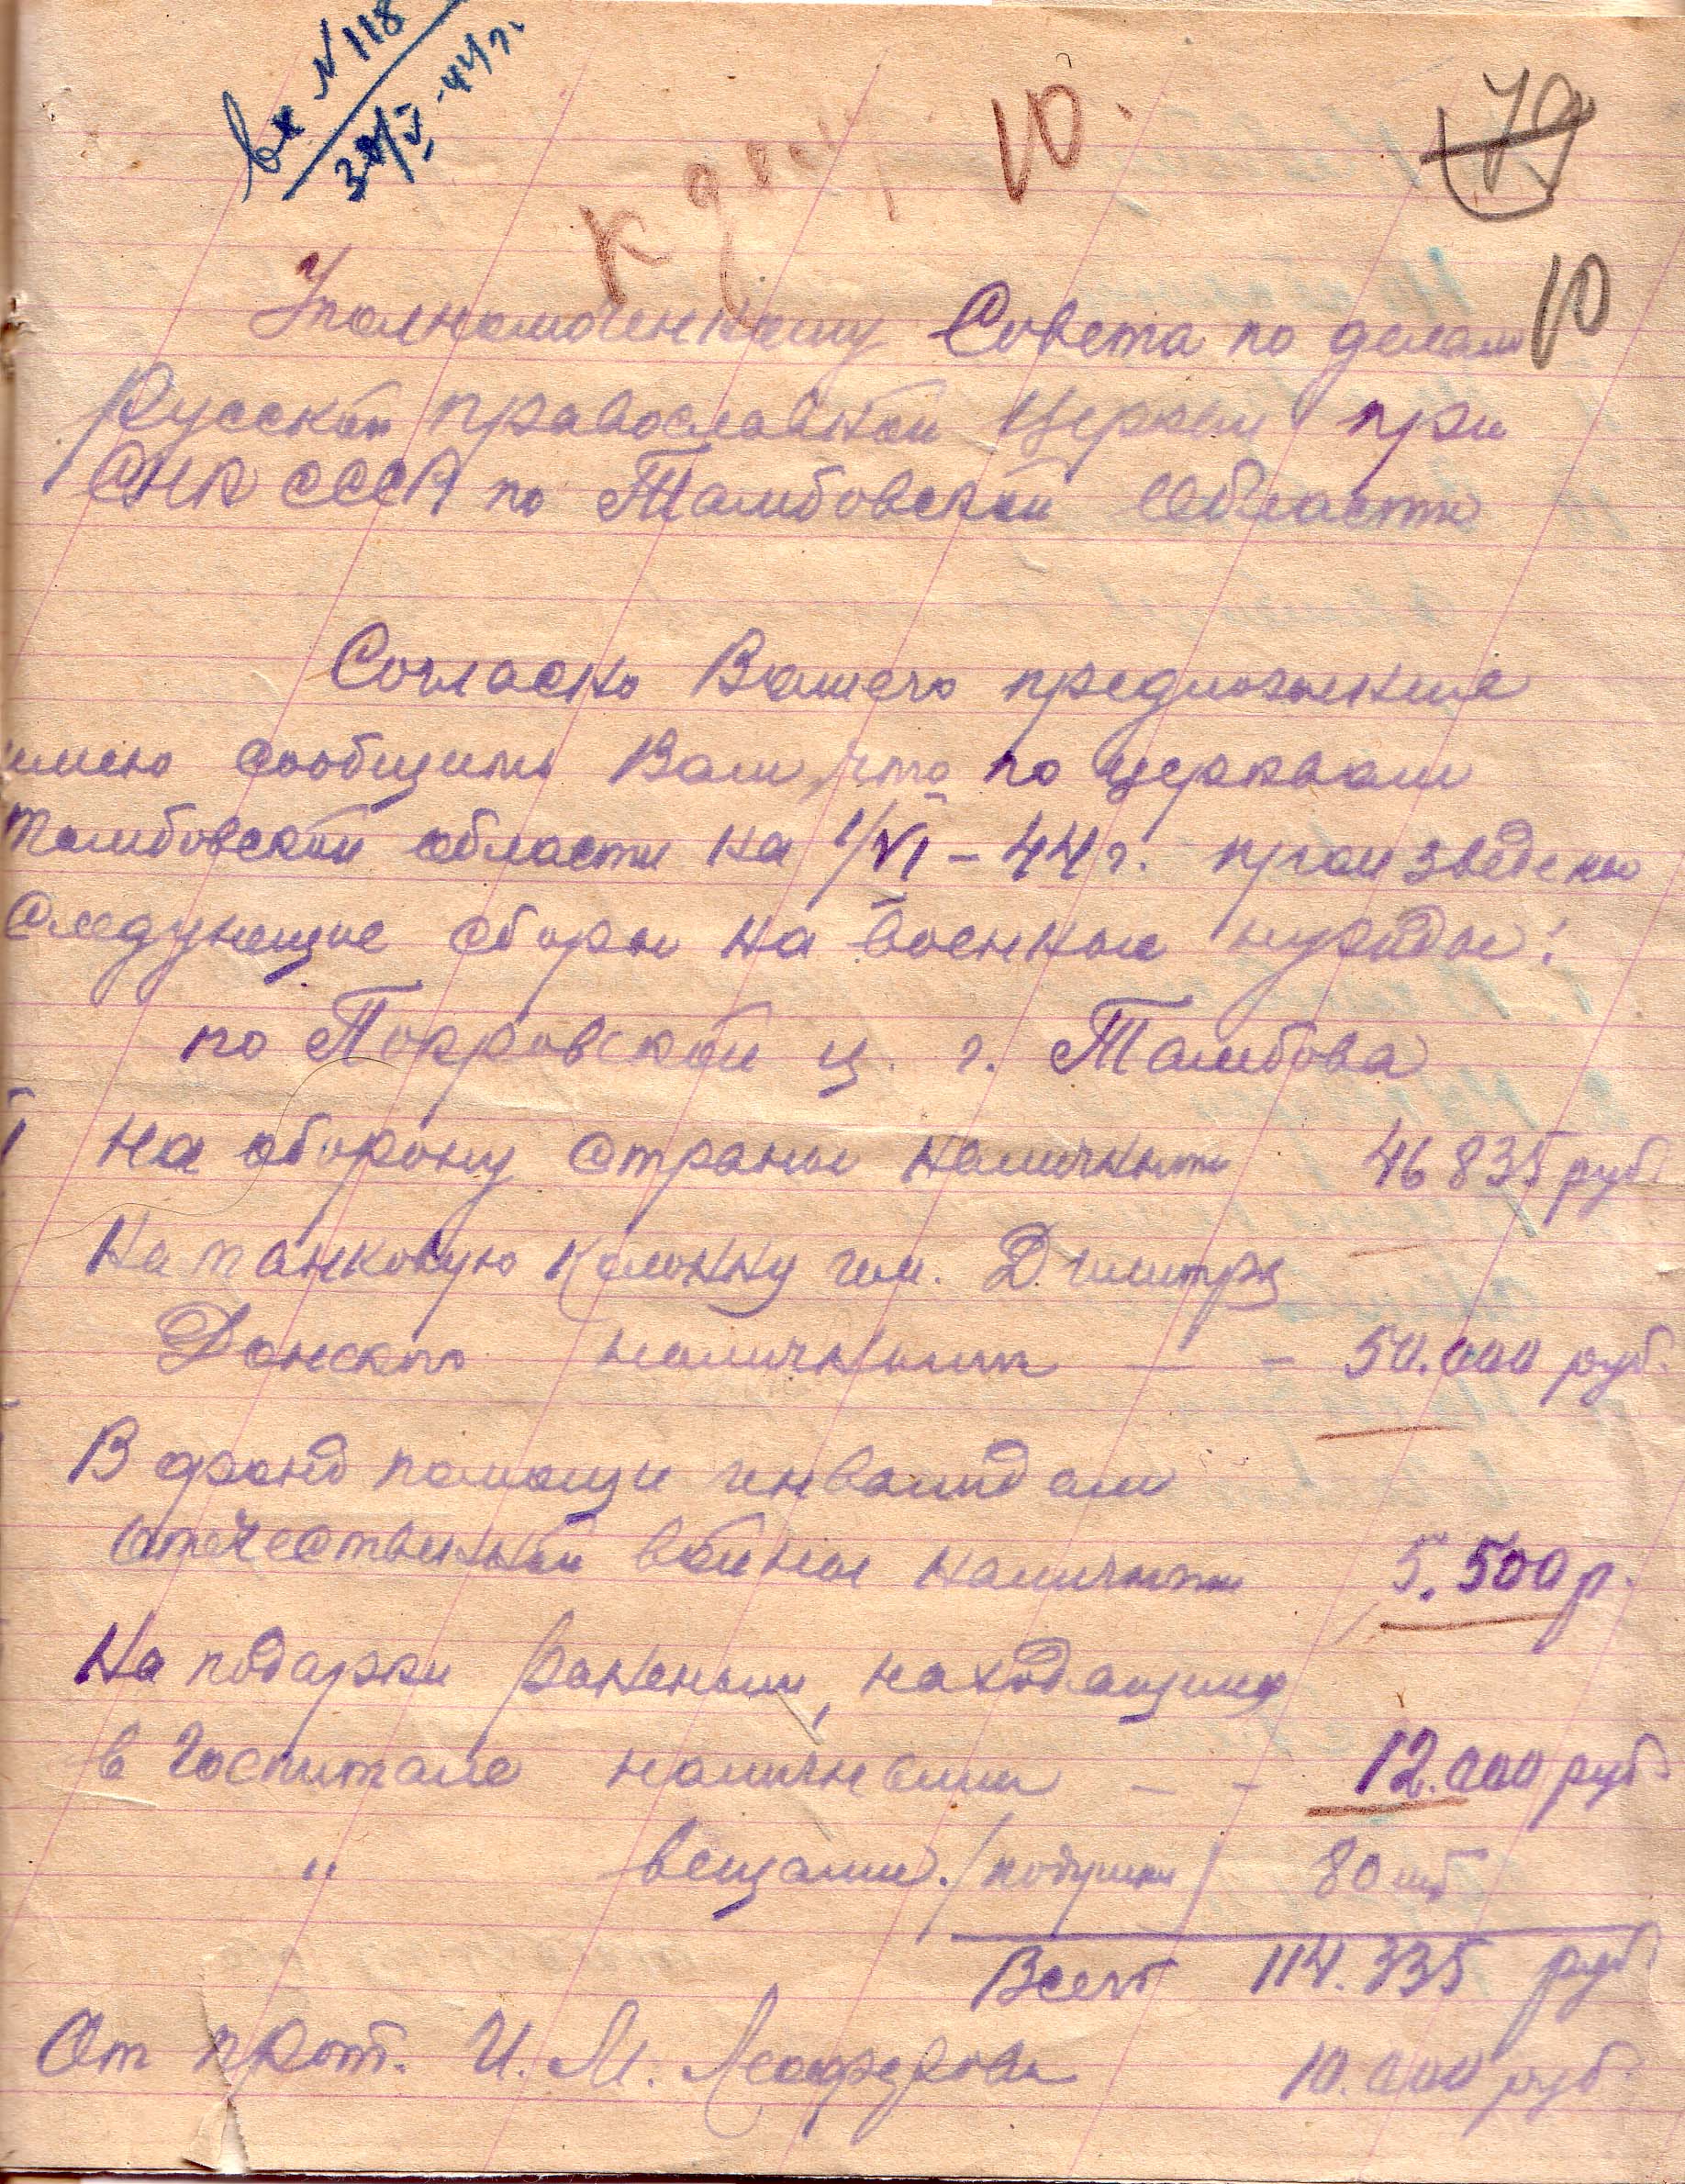 вх N 118
30/V-44 г.
к делу
10.
79
10
Уполномоченному Совета по делам
Русской православной Церкви при
СНК СССР по Тамбовской Области
Согласно Вашего предложения
имею сообщить Вам, что по церквам
Тамбовской области на 1/VI - 44 г. произведены
следующие сборы на военные нужды:
по Покровской ц. г. Тамбова
на оборону страны наличными 46 835 руб.
На танковую колонну им. Димитрия
Донского наличными — - 50.000 руб.
В фонд помощи инвалидам
отечественной войны наличными 5.500 р.
На подарки раненым, находящимся
в госпитале наличными — - 12.000 руб.
" вещами. /подушки/ 80 шт
Всего 114.335 руб.
От прот. И. М. 10.000 руб.